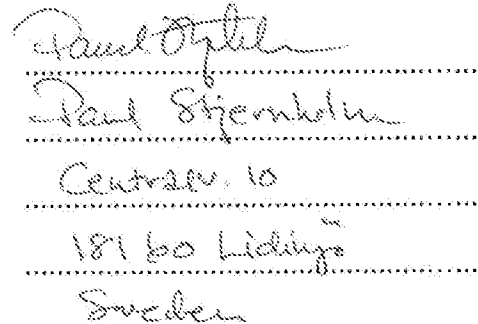 Paul
Paul Stjernholm
Centralv. 10
181 60 Lidingö
Sweden